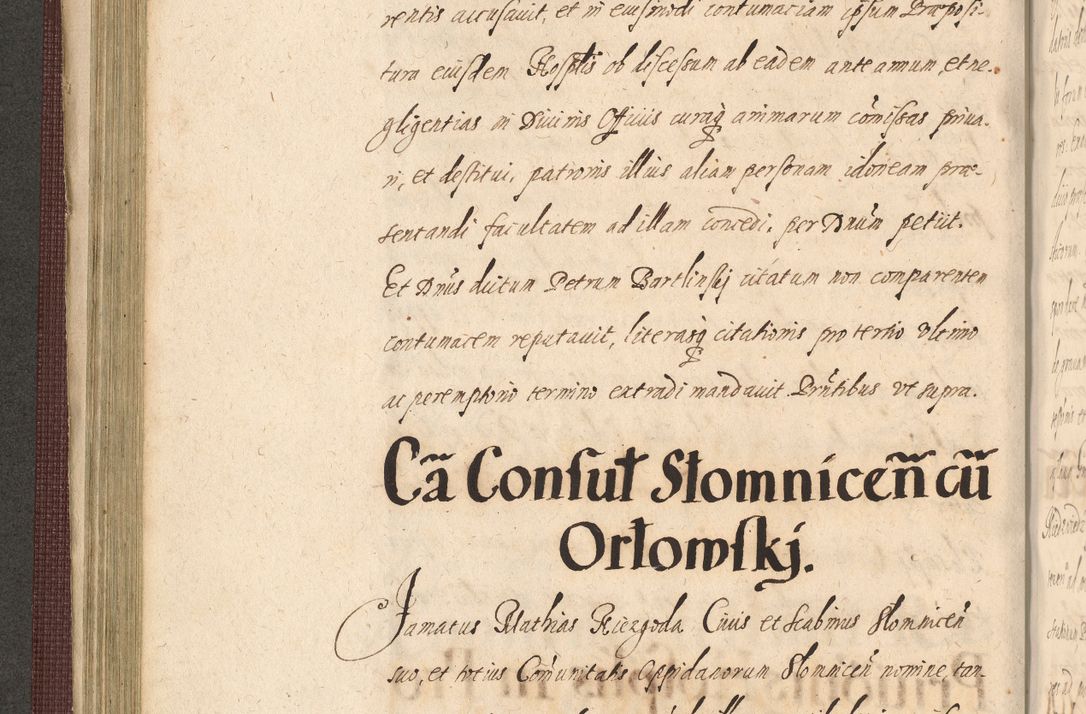 rentis accusavit, et in eiusmodi contumaciam ipsum Præposi-
tura eiusdem Hosptlis ob discessum ab eadem ante annum, et ne-
gligentias in Divinis Officiis curaq; animarum cõmissas priva-
ri, et destitui, patronis illius aliam personam idoneam præ-
sentandi facultatem ad illam concedi, per Dnũm petiit.
Et Dnũs dictum Petrum Bartlinskj citatum non comparentem
contumacem reputavit, literasq; citationis pro tertio ultimo
ac peremptorio termino extradi mandavit. Prñtibus ut supra.
Cã Consuł Słomniceñ cũ
Orłowskj.
Famatus Mathias Niezgoda Civis et scabinus Slomniceñ
suo, et totius Com̃unitatis Oppidanorum Slomniceñ nomine, tan-